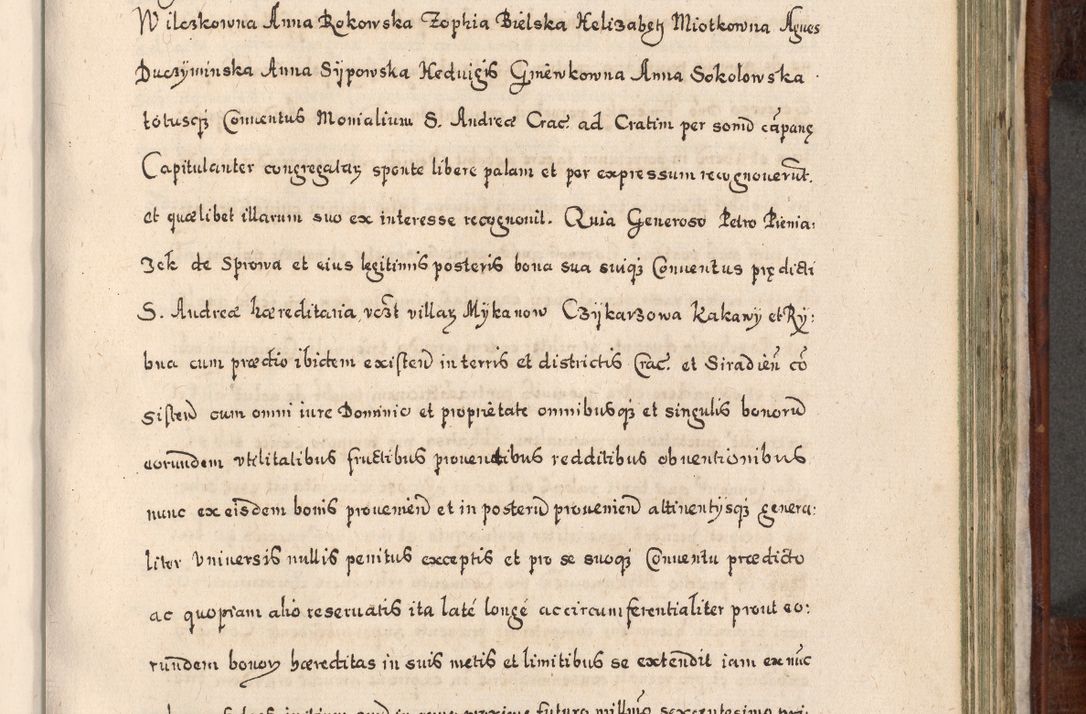 Wilczkowna Anna Rokowska Zophia Bielska Helizabeth Miotkowna Agnes
Duczyminska Anna Sypowska Heduigis Gniewkowna Anna Sokolowska
totusq; Conuentus Monialium S. Andreæ Crac: ad Cratim per sonū cāpanę
Capitulariter congregatar sponte libere palam et per expressum recognouerūt.
et quælibet illarum suo ex interesse recognouit. Quia Generoso Petro Pienia:
zek de Sprowa et eius legitimis posteris bona sua suiq; Conuentus prędicti
S. Andreæ hæreditaria, vczt villas Mykanow Czykarzowa Kakawy et Ry:
bna cum prædio ibidem existen in terris et districtis Crac: et Siradień cō
sisten cum omni iure Dominio et proprietate omnibusq; et singulis bonorū
eorundem vtilitatibus fructibus prouentibus redditibus obuentionibus
nunc ex eisdem bonis prouenien et in posterū prouenien attinentysq; genera:
liter Vniuersis nullis penitus exceptis et pro se suoq; Conuentu prædicto
ac quopiam alio reseruatis ita laté longé ac circumferentialiter prout eo:
rundem bonor hæreditas in suis metis et limitibus se extendit iam ex nūc